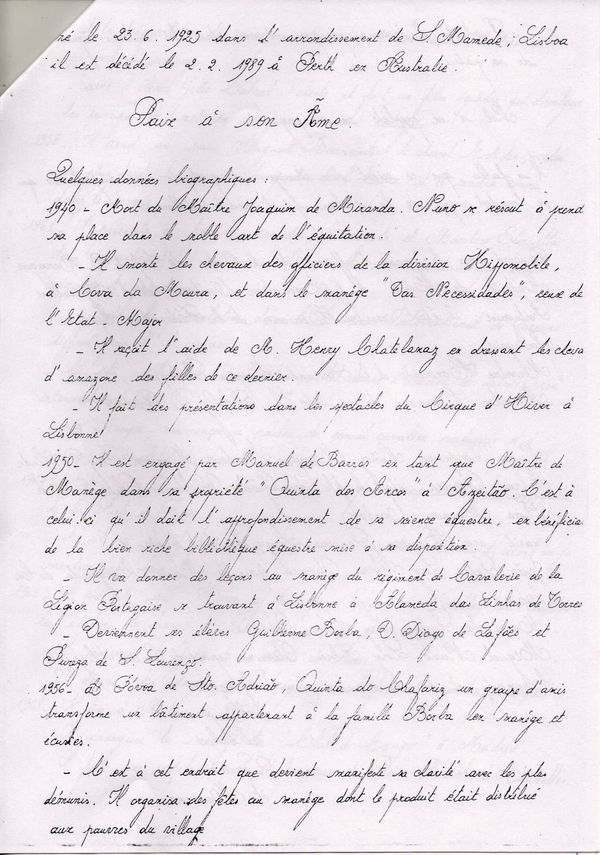 né le 23.6.1925 dans l'arrondissement de S. Mamede, Lisboa
il est décidé le 2.2.1989 à Perth en Australie.
Paix à son Âme.
Quelques données biographiques :
1940 - Mort du Maître Joaquim de Miranda. Nuno se résout à prend
sa place dans le noble art de l'équitation.
- Il monte les chevaux des officiers de la division Hippomobile,
à Cova da Moura, et dans le manége "Das Necessidades", ceux de
l'Etat-Major
- Il reçoit l'aide de M. Henry Chatelanaz en dressant les cheva
d'amazone des filles de ce dernier.
- Il fait des présentations dans les spectacles du Cirque d'Hiver à
Lisbonne
1950 - Il est engagé par Manuel de Barros en tant que Maître de
Manège dans sa propriété "Quinta dos Arcos" à Azeitão. C'est à
celui ci qu'il doit l'approfondissement de sa science équestre, en bénéficia
de la bien riche bibliothèque équestre mise à sa disposition.
- Il va donner des leçons au manège du régiment de Cavalerie de la
Légion Portugaise se trouvant à Lisbonne à Alameda das Linhas de Torres
- Deviennent ses élèves Guilherme Borba, D. Diogo de Lafões et
de S. Lourenço.
1956 - Póvoa de Sto. Adrião, Quinta do Chafariz un groupe d'amis
transforme un bâtiment appartenant à la famille Borba en manége et
écuries.
- C'est à cet endroit que devient manifeste sa charité avec les plus
démunis. Il organisa des fêtes au manége dont le produit était distribué
aux pauvres du village